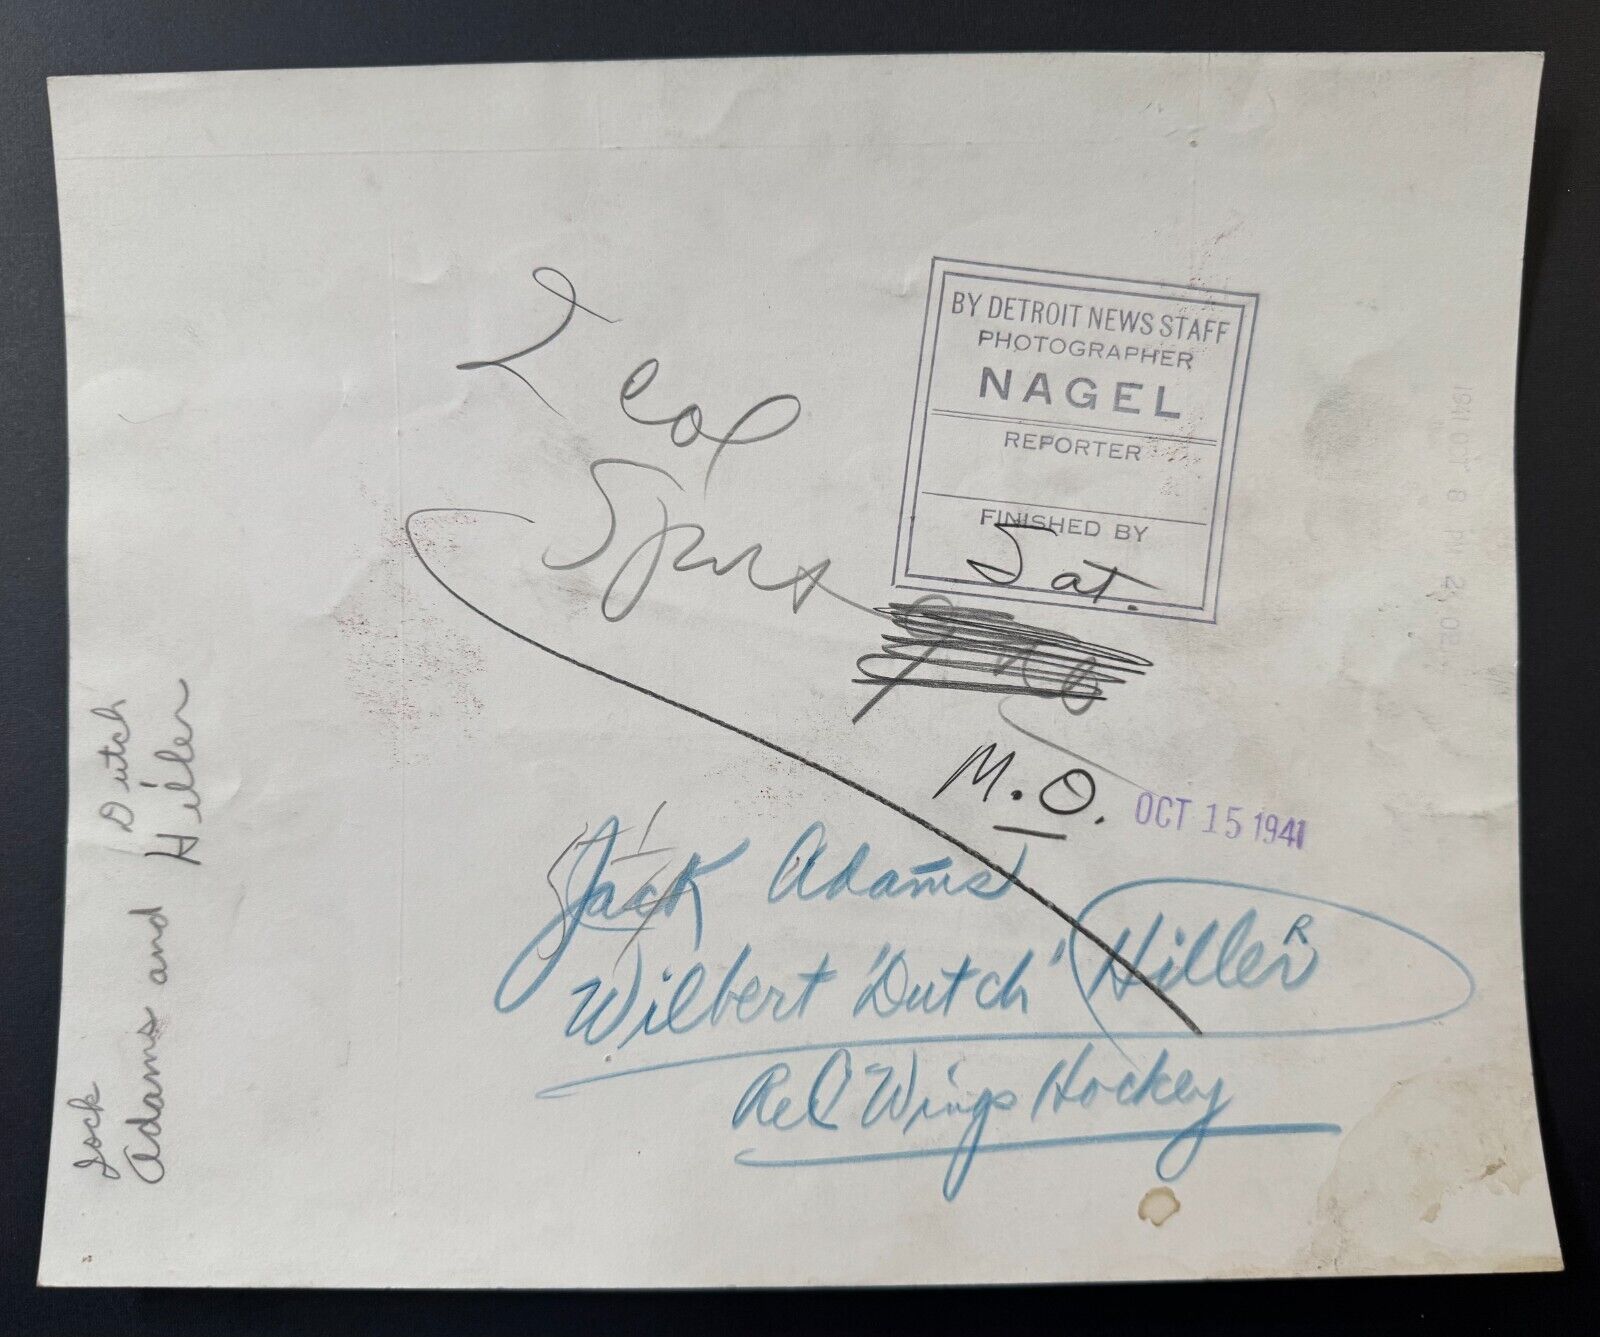 BY DETROIT NEWS STAFF
PHOTOGRAPHER
NAGEL
REPORTER
FINISHED BY
Sat.
Sports
M.O.
OCT 15 1941
Jack Adams
Wilbert 'Dutch' Hiller
Red Wings Hockey
Jack Dutch
Adams and Hiller